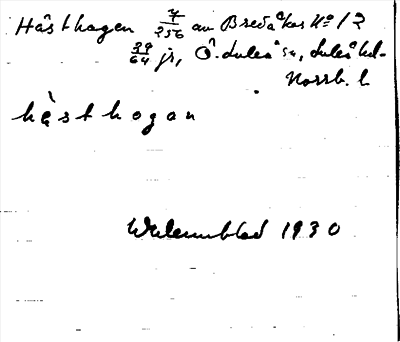 Hästhagen 7/256 av Bredåker No 12
39/64 jr, Ö. Luleå sn, Luleå hd.
Norrb. l
hàsthogan
1930